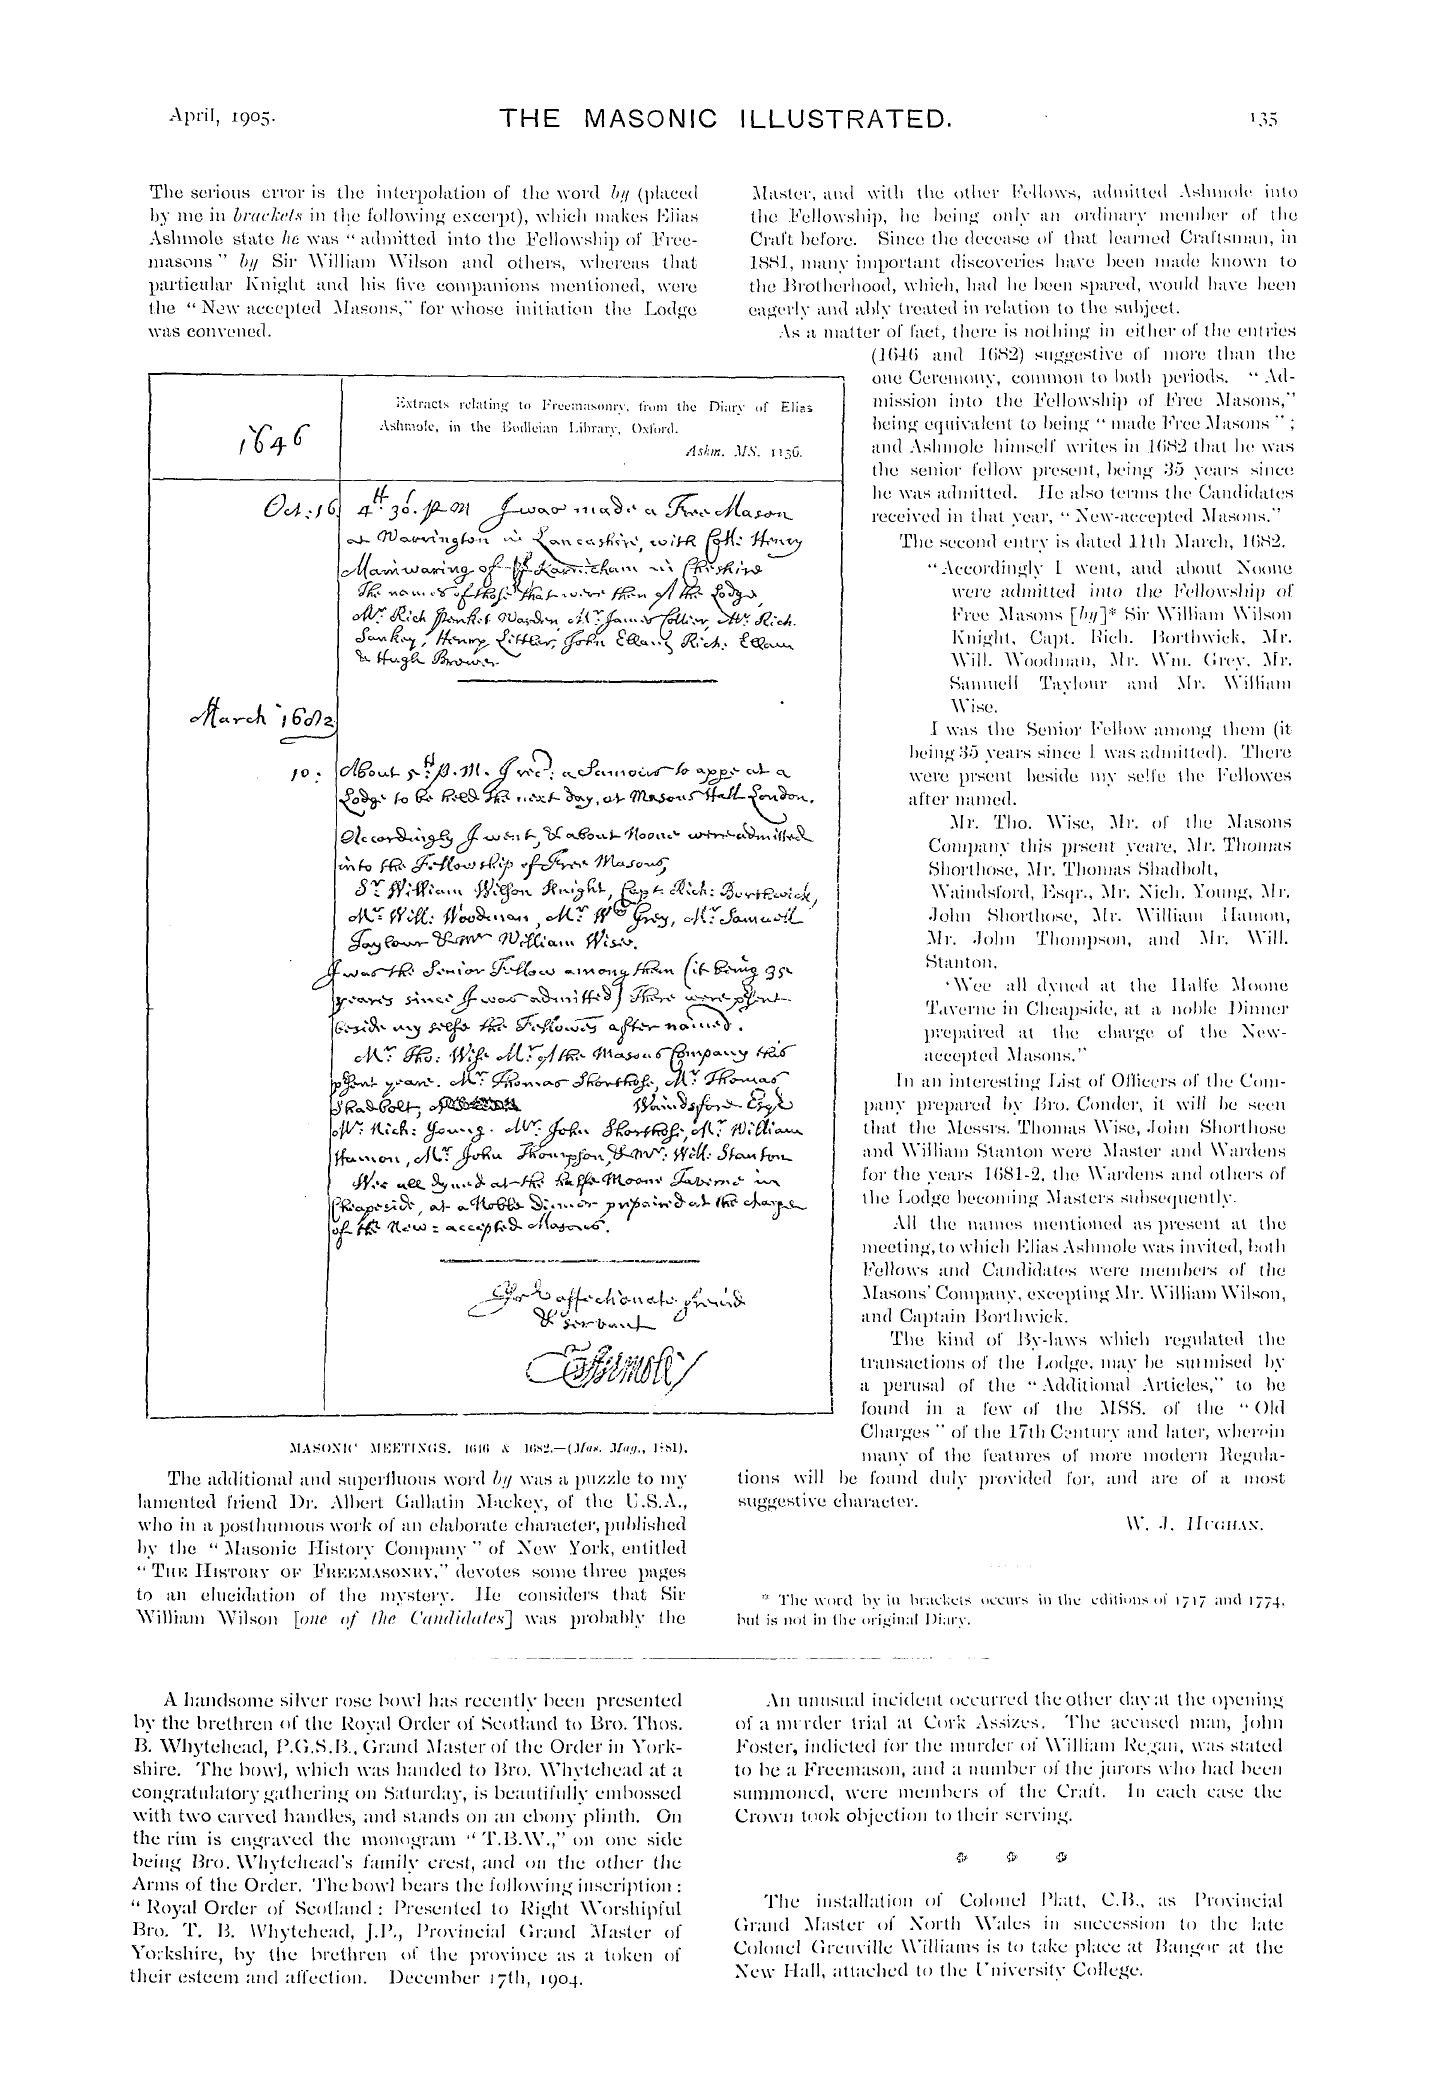 April, 1905.
THE MASONIC ILLUSTRATED.
135
The serious error is the interpolation of the word by (placed
by me in brackets in the following excerpt), which makes Elias
Ashmole state he was “ admitted into the Fellowship of Free-
masons ” by Sir William Wilson and others, whereas that
particular Knight and his five companions mentioned, were
the “ New accepted Masons,” for whose initiation the Lodge
was convened.
Extracts relating to Freemasonry, from the Diary of Elias
Ashmole, in the Bodleian Library, Oxford.
Ashm. MS. 1136.
1646
Oct: 16
4H 30' p.m I was made a Free Mason
at Warrington in Lancashire, with Coll: Henry
Mainwaring of Karincham in Cheshire
The names of those that were then of the Lodge,
Mr. Rich Penket Warden, Mr. James Collier, Mr. Rich.
Sankey, Henry Littler, John Ellam, Rich: Ellam
& Hugh Brewer
March 1682
10 :
About 5H: p.m. I rec: a Samons to appe at a
Lodge to be held the next day, at Masons Hall London.
Accordingly I went, & about Noone were admitted
into the Fellowship of Free Masons,
Sr. William Wilson Knight, Capt. Rich: Borthwick,
Mr. Will: Woodman, Mr. Wm Grey, Mr. Samuell
Taylour & Mr William Wise.
I was the Senior Fellow among them (it being 35
yeares since I was admitted) There were psent
beside my selfe the Fellowes after named.
Mr. Tho: Wise Mr. of the Masons Company this
psent yeare. Mr. Thomas Shorthose, Mr. Thomas
Shadbolt, Waindsford Esqr
Mr. Nich: Young. Mr. John Shorthose, Mr. William
Hamon, Mr. John Thompson, & Mr. Will: Stanton
Wee all dyned at the halfe Moone Taverne in
Cheapeside, at a Noble Dinner prepaired at the charge
of the New = accepted Masons.
Yor affectionate freind
& servant
E Ashmole
MASONIC MEETINGS, 1646 & 1682.—(Mas. Mag., 1881).
The additional and superfluous word by was a puzzle to my
lamented friend Dr. Albert Gallatin Mackey, of the U.S.A.,
who in a posthumous work of an elaborate character, published
by the “ Masonic History Company ” of New York, entitled
“ THE HISTORY OF FREEMASONRY,” devotes some three pages
to an elucidation of the mystery. He considers that Sir
William Wilson [one of the Candidates] was probably the
Master, and with the other Fellows, admitted Ashmole into
the Fellowship, he being only an ordinary member of the
Craft before. Since the decease of that learned Craftsman, in
1881, many important discoveries have been made known to
the Brotherhood, which, had he been spared, would have been
eagerly and ably treated in relation to the subject.
As a matter of fact, there is nothing in either of the entries
(1646 and 1682) suggestive of more than the
one Ceremony, common to both periods. “ Ad-
mission into the Fellowship of Free Masons,”
being equivalent to being “ made Free Masons ” ;
and Ashmole himself writes in 1682 that he was
the senior fellow present, being 35 years since
he was admitted. He also terms the Candidates
received in that year, “ New-accepted Masons.”
The second entry is dated 11th March, 1682.
“Accordingly I went, and about Noone
were admitted into the Fellowship of
Free Masons [by]* Sir William Wilson
Knight, Capt. Rich. Borthwick, Mr.
Will. Woodman, Mr. Wm. Grey, Mr.
Samuell Taylour and Mr. William
Wise.
I was the Senior Fellow among them (it
being 35 years since I was admitted). There
were prsent beside my selfe the Fellowes
after named.
Mr. Tho. Wise, Mr. of the Masons
Company this prsent yeare, Mr. Thomas
Shorthose, Mr. Thomas Shadbolt,
Waindsford, Esqr., Mr. Nich. Young, Mr.
John Shorthose, Mr. William Hamon,
Mr. John Thompson, and Mr. Will.
Stanton.
‘Wee all dyned at the Halfe Moone
Taverne in Cheapside, at a noble Dinner
prepaired at the charge of the New-
accepted Masons.”
In an interesting List of Officers of the Com-
pany prepared by Bro. Conder, it will be seen
that the Messrs. Thomas Wise, John Shorthose
and William Stanton were Master and Wardens
for the years 1681-2, the Wardens and others of
the Lodge becoming Masters subsequently.
All the names mentioned as present at the
meeting, to which Elias Ashmole was invited, both
Fellows and Candidates were members of the
Masons’ Company, excepting Mr. William Wilson,
and Captain Borthwick.
The kind of By-laws which regulated the
transactions of the Lodge, may be surmised by
a perusal of the “ Additional Articles,” to be
found in a few of the MSS. of the “ Old
Charges ” of the 17th Century and later, wherein
many of the features of more modern Regula-
tions will be found duly provided for, and are of a most
suggestive character.
W. J. HUGHAN.
* The word by in brackets occurs in the editions of 1717 and 1774,
but is not in the original Diary.
A handsome silver rose bowl has recently been presented
by the brethren of the Royal Order of Scotland to Bro. Thos.
B. Whytehead, P.G.S.B., Grand Master of the Order in York-
shire. The bowl, which was handed to Bro. Whytehead at a
congratulatory gathering on Saturday, is beautifully embossed
with two carved handles, and stands on an ebony plinth. On
the rim is engraved the monogram “ T.B.W.,” on one side
being Bro. Whytehead’s family crest, and on the other the
Arms of the Order. The bowl bears the following inscription :
“ Royal Order of Scotland : Presented to Right Worshipful
Bro. T. B. Whytehead, J.P., Provincial Grand Master of
Yorkshire, by the brethren of the province as a token of
their esteem and affection. December 17th, 1904.
An unusual incident occurred the other day at the opening
of a murder trial at Cork Assizes. The accused man, John
Foster, indicted for the murder of William Regan, was stated
to be a Freemason, and a number of the jurors who had been
summoned, were members of the Craft. In each case the
Crown took objection to their serving.
The installation of Colonel Platt, C.B., as Provincial
Grand Master of North Wales in succession to the late
Colonel Grenville Williams is to take place at Bangor at the
New Hall, attached to the University College.